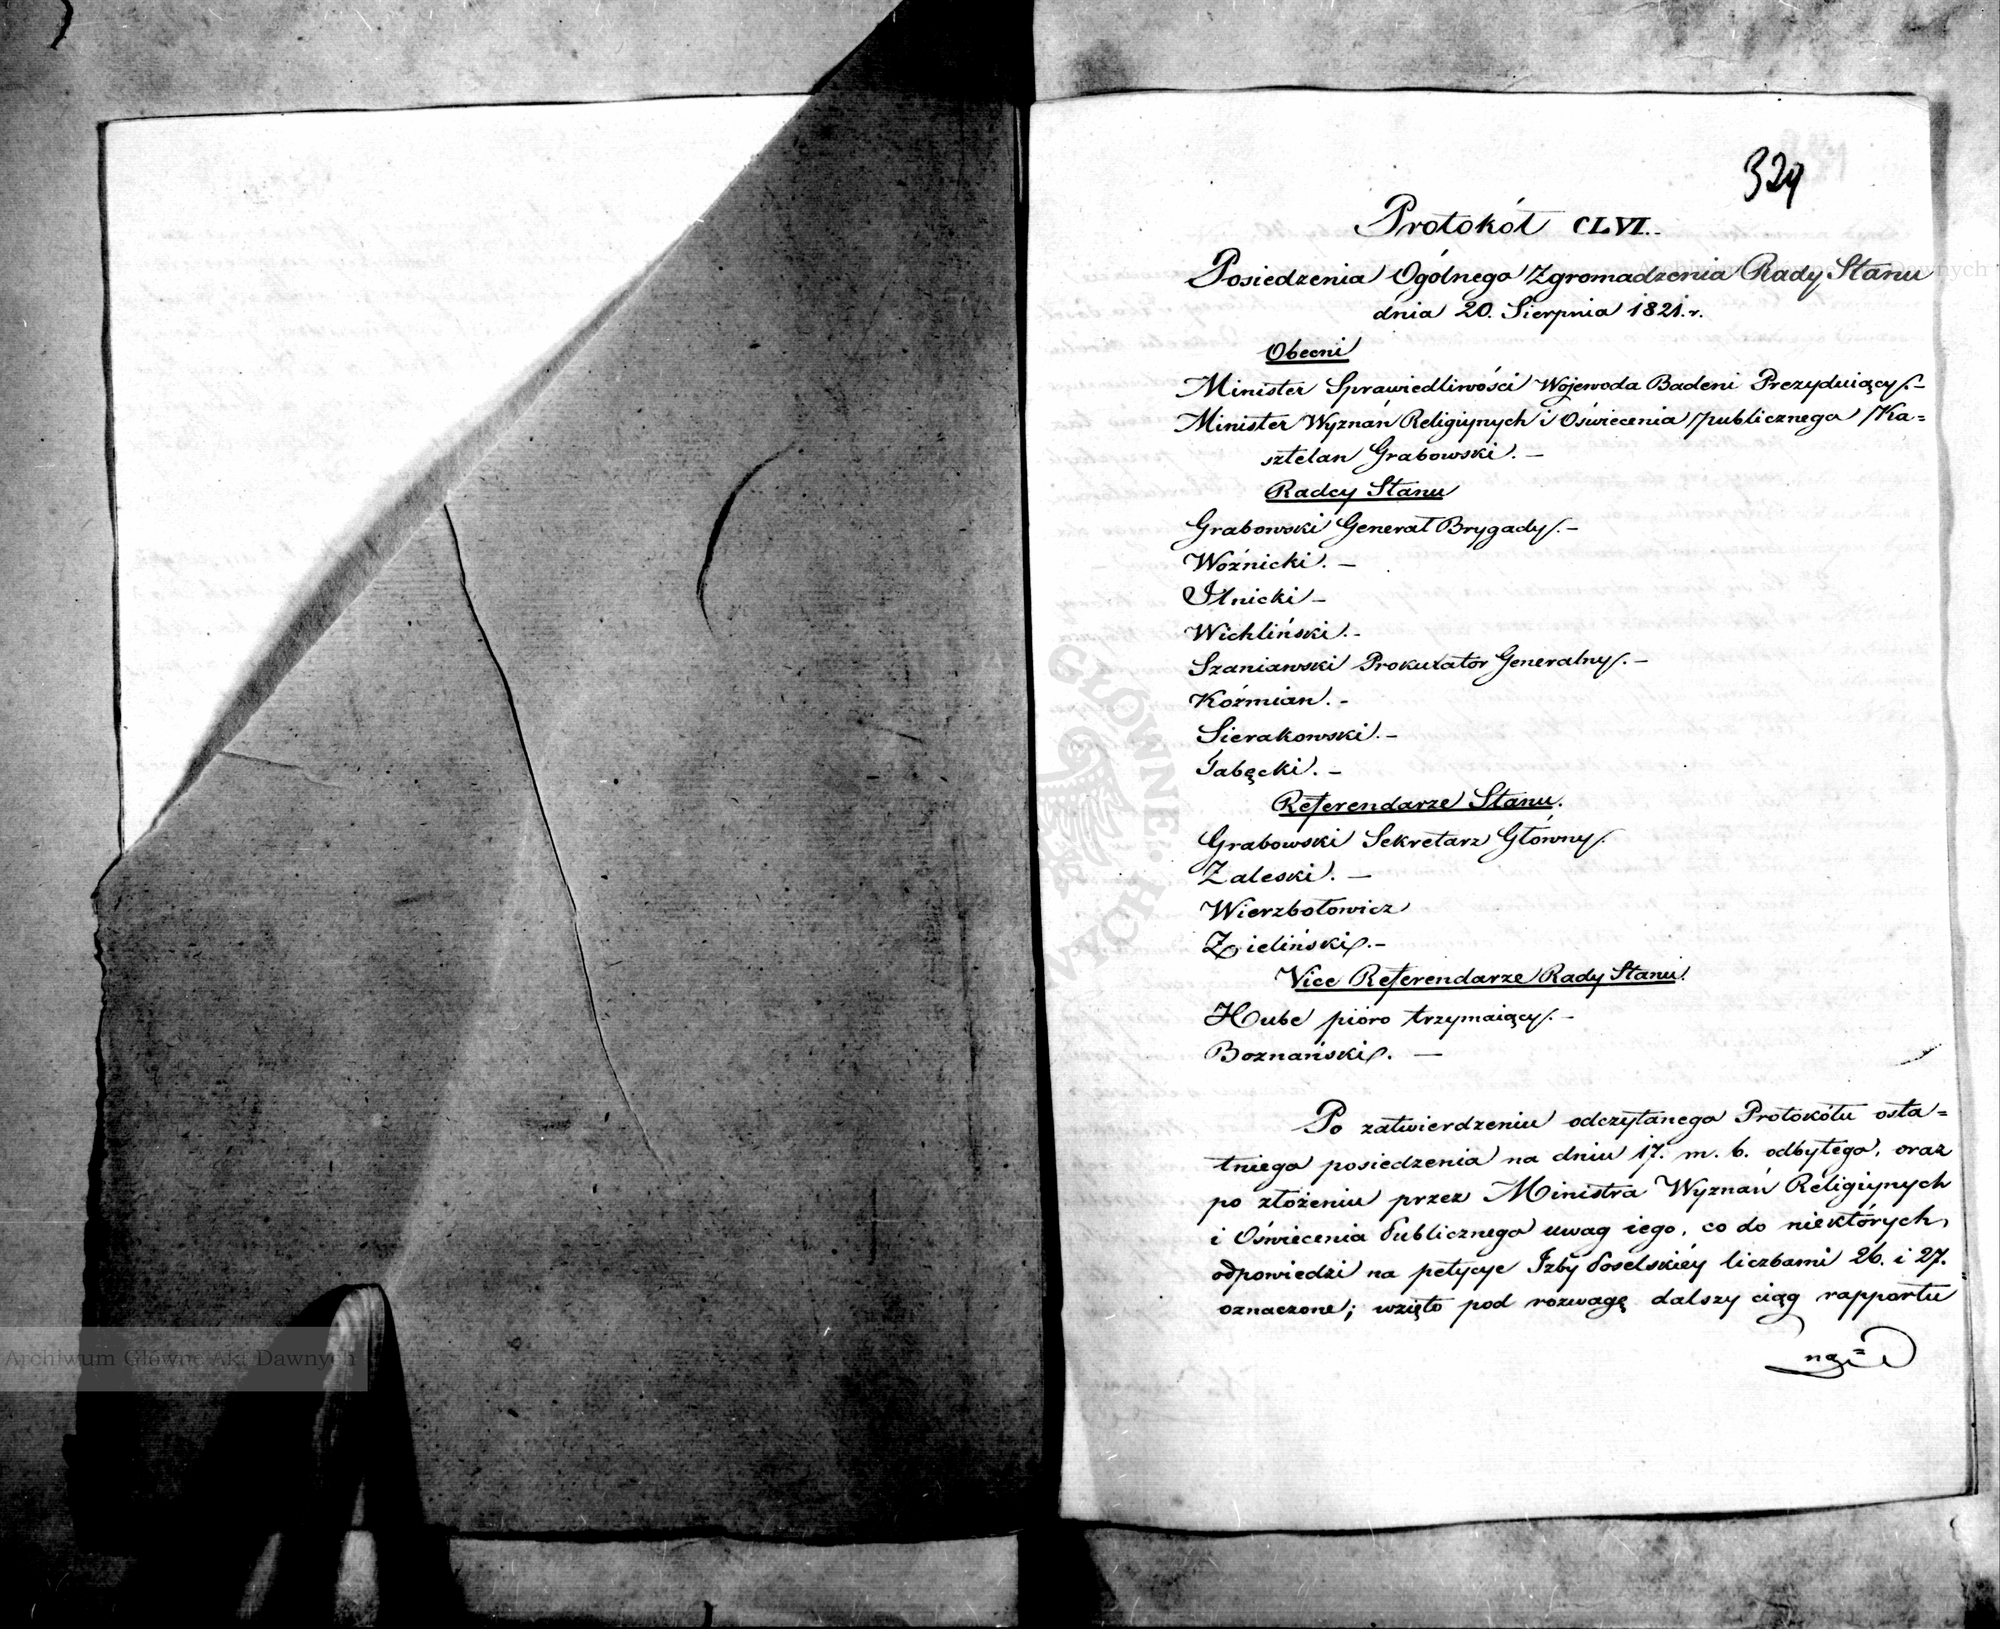 329
Protokół CLVI.
Posiedzenia Ogólnego Zgromadzenia Rady Stanu
dnia 20. Sierpnia 1821. r.
Obecni
Minister Sprawiedliwości Wojewoda Badeni Prezyduiący. –
Minister Wyznań Religiynych i Oświecenia publicznego Ka=
sztelan Grabowski. –
Radcy Stanu
Grabowski Generał Brygady. –
Woźnicki. –
Ilnicki –
Wichliński. –
Szaniawski Prokurator Generalny. –
Koźmian. –
Sierakowski. –
Gabęcki. –
Referendarze Stanu.
Grabowski Sekretarz Główny.
Zaleski. –
Wierzbołowicz
Zieliński. –
Vice Referendarze Rady Stanu.
Hube pióro trzymaiący. –
Boznański. –
Po zatwierdzeniu odczytanego Protokółu osta=
tniego posiedzenia na dniu 17. m. b. odbytego, oraz
po złożeniu przez Ministra Wyznań Religiynych
i Oświecenia Publicznego uwag iego, co do niektórych
odpowiedzi na petycye Izby Poselskiéy liczbami 26. i 27.
oznaczone; wzięto pod rozwagę dalszy ciąg rapportu
Archiwum Główne Akt Dawnych